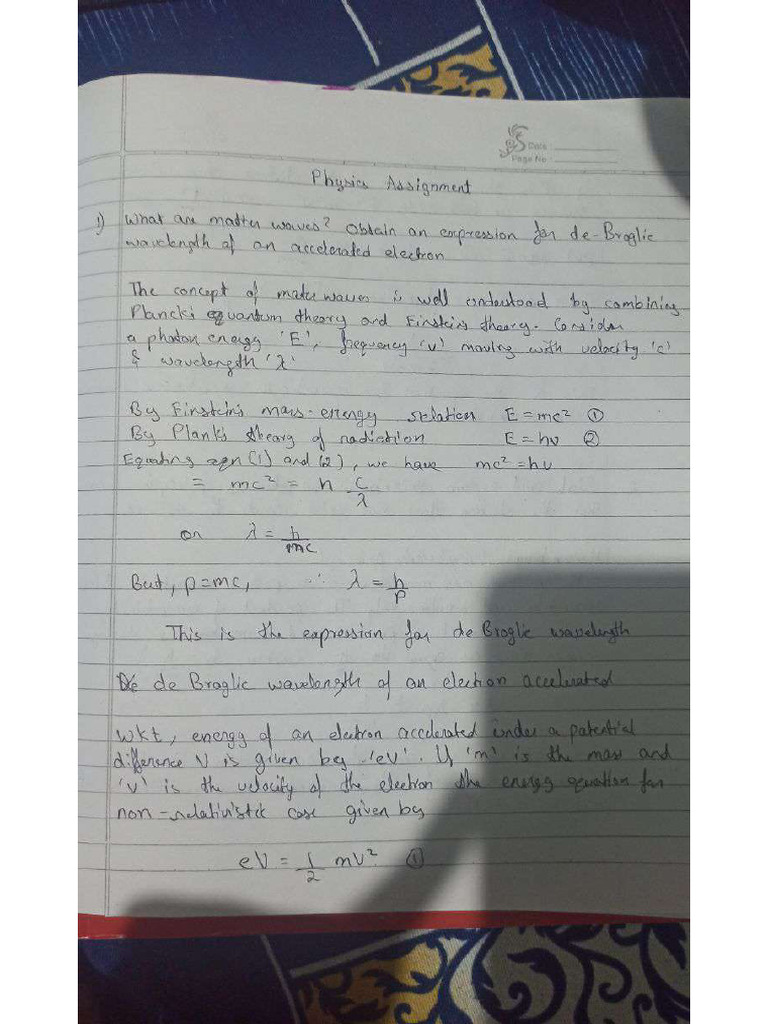 Date
Page No
Physics Assignment
1) What are matter waves? Obtain an expression for de-Broglie
wavelength of an accelerated electron
The concept of matter waves is well understood by combining
Planck's quantum theory and Einstein's theory. Consider
a photon energy 'E', frequency 'ν' moving with velocity 'c'
& wavelength 'λ'
By Einstein's mass-energy relation E = mc² ①
By Plank's theory of radiation E = hν ②
Equating eqn (1) and (2), we have mc² = hν
= mc² = h c/λ
or λ = h/mc
But, p = mc, ∴ λ = h/p
This is the expression for de Broglie wavelength
de Broglie wavelength of an electron accelerated
Wkt, energy of an electron accelerated under a potential
difference V is given by 'eV'. If 'm' is the mass and
'v' is the velocity of the electron the energy equation for
non-relativistic case given by
eV = 1/2 mv² ①